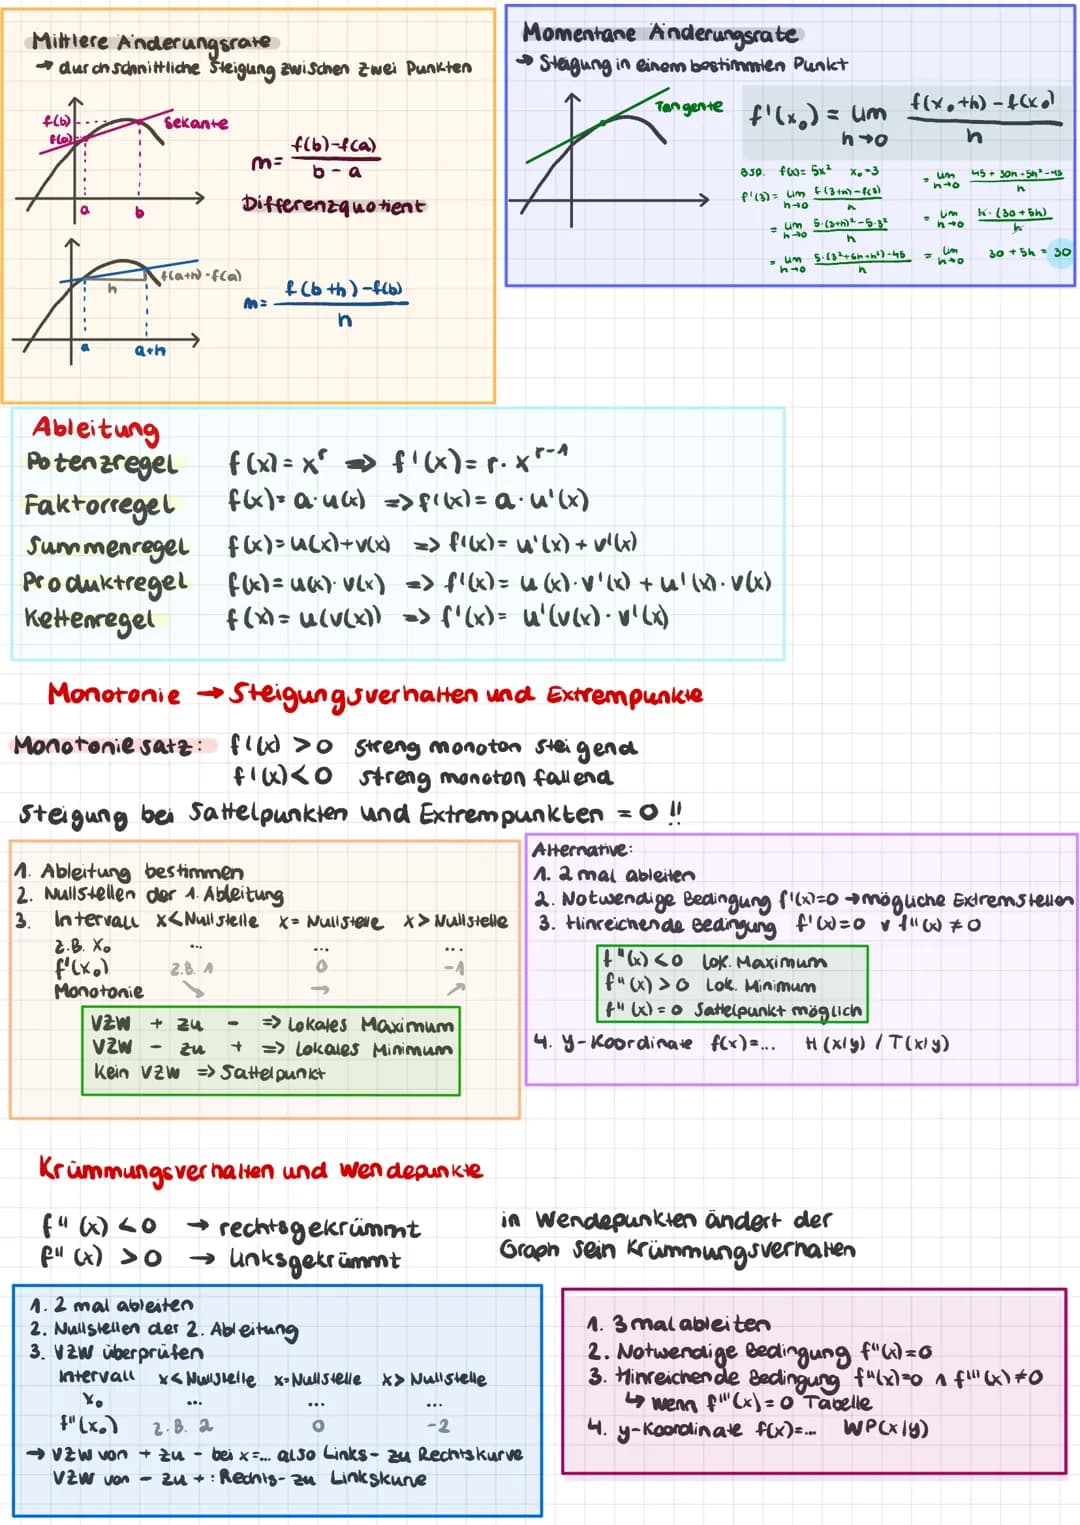 Mittlere Änderungsrate
→ durchschnittliche Steigung zwischen zwei Punkten
f(b)
f(a)
Sekante
a
b
m= f(b)-f(a) / b - a
Differenzquotient
f(a+h)-f(a)
h
a
a+h
m= f(b+h)-f(b) / h
Momentane Änderungsrate
→ Steigung in einem bestimmten Punkt
Tangente
f'(x₀) = lim h→0 f(x₀+h)-f(x₀) / h
Bsp. f(x)= 5x² x₀=3
f'(3)= lim h→0 f(3+h)-f(3) / h
= lim h→0 5·(3+h)²-5·3² / h
= lim h→0 5·(3²+6h+h²)-45 / h
= lim h→0 45+30h+5h²-45 / h
= lim h→0 h·(30+5h) / h
= lim h→0 30+5h = 30
Ableitung
Potenzregel f(x)= x^r => f'(x)= r·x^r-1
Faktorregel f(x)= a·u(x) => f'(x)= a·u'(x)
Summenregel f(x)=u(x)+v(x) => f'(x)= u'(x)+v'(x)
Produktregel f(x)=u(x)·v(x) => f'(x)= u(x)·v'(x)+u'(x)·v(x)
Kettenregel f(x)=u(v(x)) => f'(x)= u'(v(x)·v'(x)
Monotonie → Steigungsverhalten und Extrempunkte
Monotoniesatz: f'(x) >0 streng monoton steigend
f'(x)<0 streng monoton fallend
Steigung bei Sattelpunkten und Extrempunkten = 0 !!
1. Ableitung bestimmen
2. Nullstellen der 1. Ableitung
3. Intervall x<Nullstelle x= Nullstelle x> Nullstelle
z.B. x₀ ... ... ...
f'(x₀) z.B. 1 0 -1
Monotonie ↘ → ↗
VZW + zu - => Lokales Maximum
VZW - zu + => Lokales Minimum
Kein VZW => Sattelpunkt
Alternative:
1. 2 mal ableiten
2. Notwendige Bedingung f'(x)=0 → mögliche Extremstellen
3. Hinreichende Bedingung f'(x)=0 v f''(x) ≠0
f''(x)<0 Lok. Maximum
f''(x)>0 Lok. Minimum
f''(x)=0 Sattelpunkt möglich
4. y-Koordinate f(x)=... H(x|y) / T(x|y)
Krümmungsverhalten und Wendepunkte
f''(x) <0 → rechtsgekrümmt
f''(x) >0 → linksgekrümmt
in Wendepunkten ändert der
Graph sein Krümmungsverhalten
1. 2 mal ableiten
2. Nullstellen der 2. Ableitung
3. VZW überprüfen
Intervall x<Nullstelle x=Nullstelle x> Nullstelle
x₀ ... ... ...
f''(x₀) z.B. 2 0 -2
→ VZW von + zu - bei x=... also Links- zu Rechtskurve
VZW von - zu +: Rechts- zu Linkskurve
1. 3 mal ableiten
2. Notwendige Bedingung f''(x)=0
3. Hinreichende Bedingung f''(x)=0 ∧ f'''(x)≠0
↳ wenn f'''(x)=0 Tabelle
4. y-Koordinate f(x)=... WP(x|y)